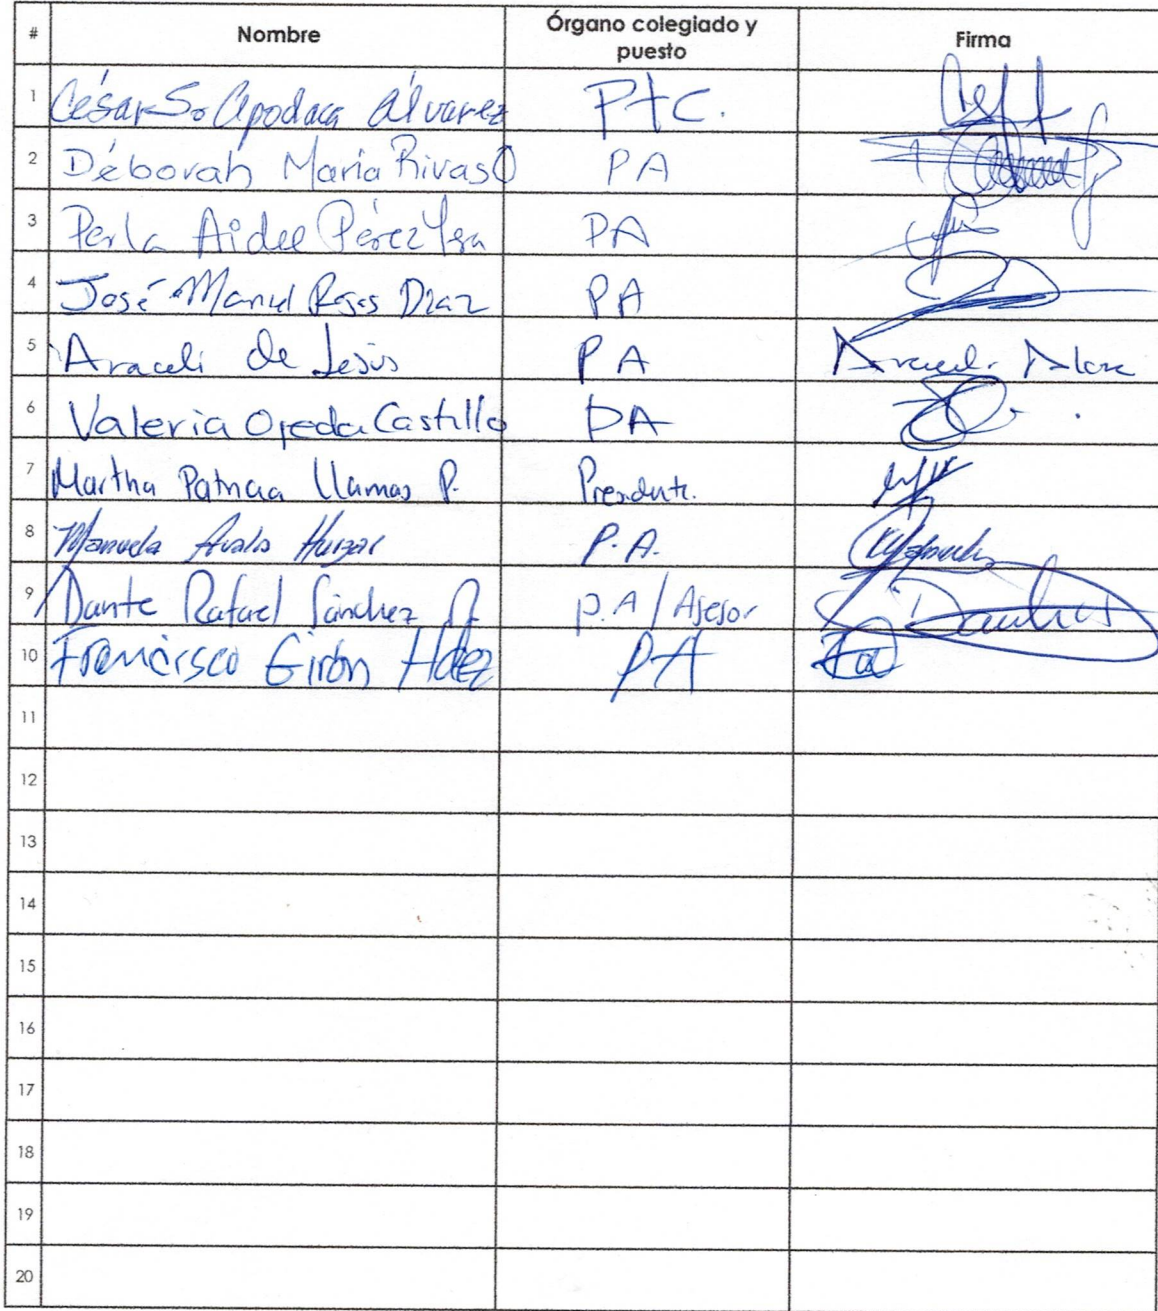 # Nombre Órgano colegiado y puesto Firma
1 César S. Apodaca Álvarez PTC.
2 Déborah María Rivas O PA
3 Perla Aidee Pérez PA
4 José Manuel Rojas Díaz PA
5 Araceli de Jesús PA Araceli
6 Valeria Ojeda Castillo PA
7 Martha Patricia Llamas P. Presidente.
8 Manuela Avalos Huizar P.A.
9 Dante Rafael Sánchez P.A / Asesor
10 Francisco Girón Hdez PA
11
12
13
14
15
16
17
18
19
20